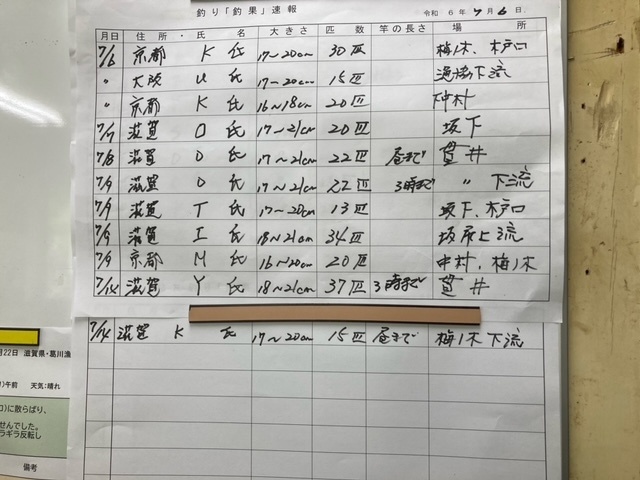 釣り「釣果」速報
令和 6年 7月 6日
月日 住所・氏 名 大きさ 匹数 竿の長さ 場 所
7/6 京都 K 氏 17〜20cm 30匹 梅ノ木、木戸口
〃 大阪 U 氏 17〜20cm 15匹 下流
〃 京都 K 氏 16〜18cm 20匹 仲村
7/7 滋賀 O 氏 17〜21cm 20匹 坂下
7/8 滋賀 O 氏 17〜21cm 22匹 昼まで 貫井
7/9 滋賀 O 氏 17〜21cm 22匹 3時まで 〃 下流
7/9 滋賀 T 氏 17〜20cm 13匹 坂下、木戸口
7/9 滋賀 I 氏 18〜21cm 34匹 坂 上流
7/9 京都 M 氏 16〜20cm 20匹 中村、梅ノ木
滋賀 Y 氏 18〜21cm 37匹 3時まで 貫井
7/14 滋賀 K 氏 17〜20cm 15匹 昼まで 梅ノ木下流
月22日 滋賀県・葛川漁
)午前 天気:晴れ
)に散らばり、
せんでした。
ラギラ反転し
備考